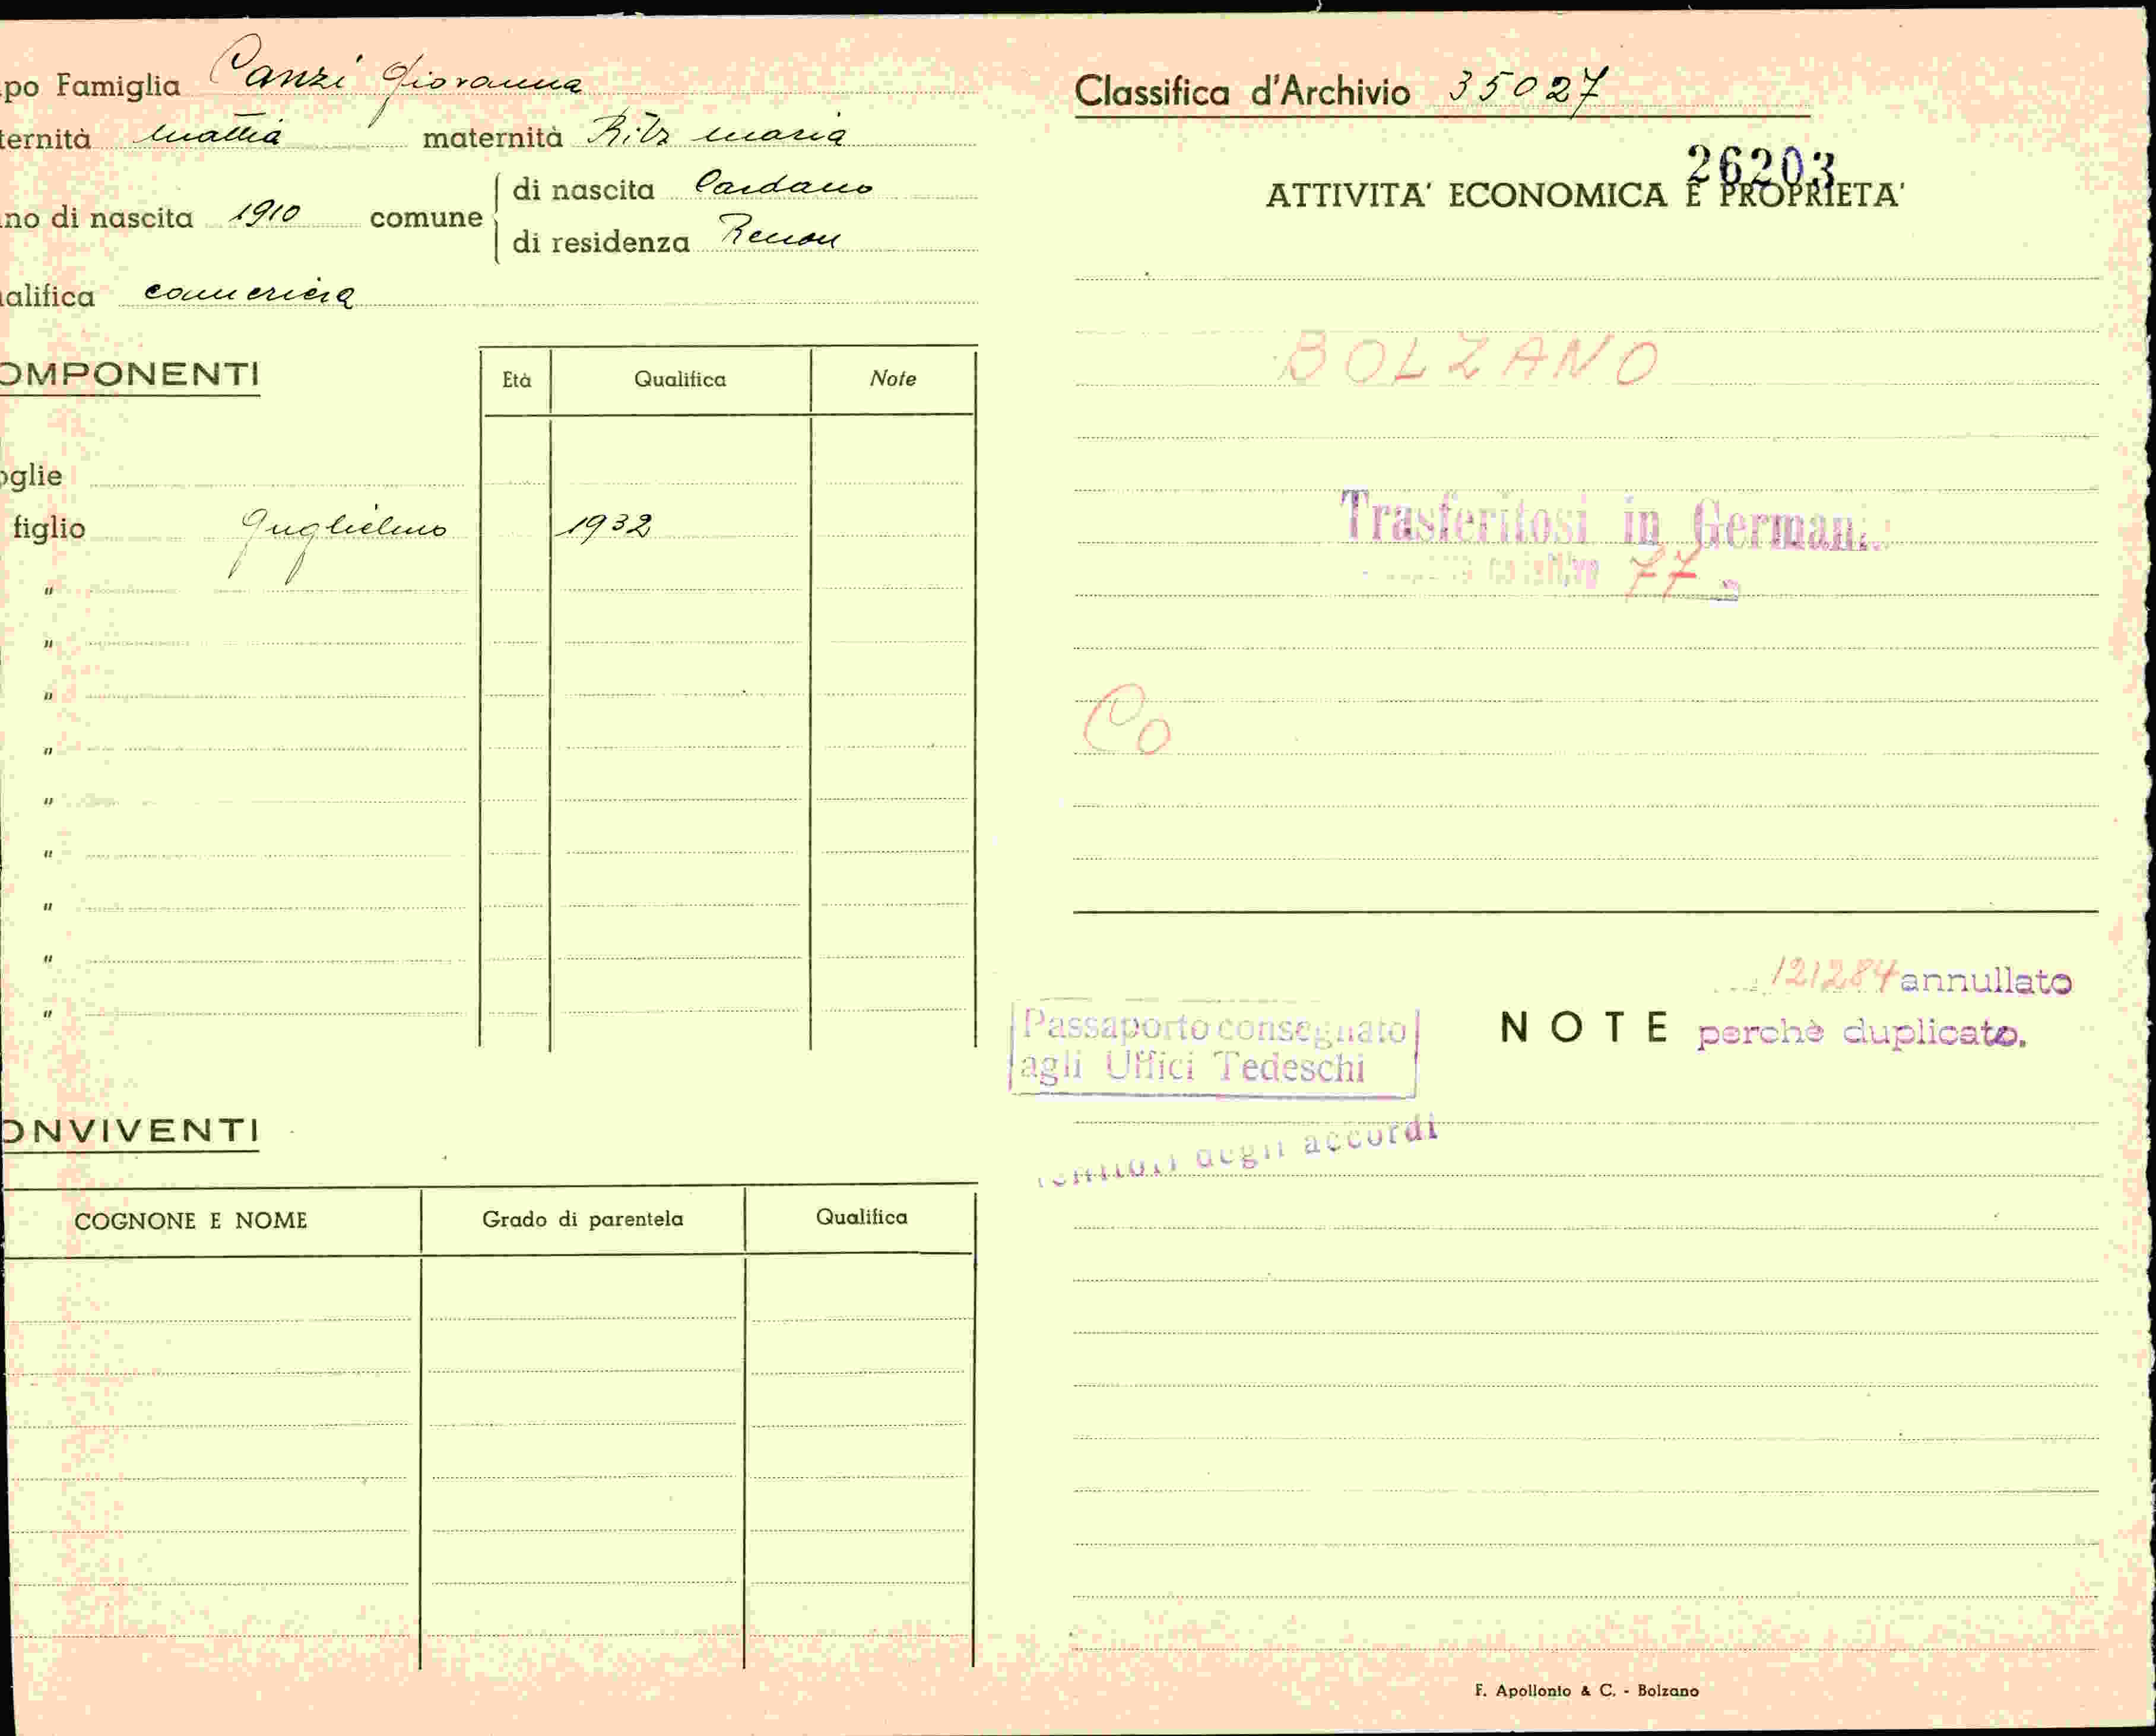 po Famiglia Canzi Giovanna
ternità Mattia maternità Ritz Maria
no di nascita 1910 comune di nascita Cardano
di residenza Renon
alifica cameriera
OMPONENTI Età Qualifica Note
oglie
figlio Guglielmo 1932
"
"
"
"
"
"
"
"
"
ONVIVENTI
COGNONE E NOME Grado di parentela Qualifica
Classifica d'Archivio 35027
26203
ATTIVITA' ECONOMICA E PROPRIETA'
BOLZANO
Trasferitosi in German.
77
Co
121284 annullato
NOTE perchè duplicato.
Passaporto consegnato
agli Uffici Tedeschi
degli accordi
F. Apollonio & C. - Bolzano